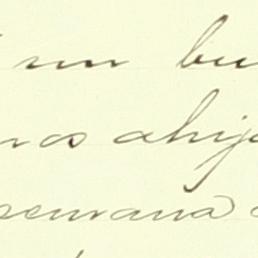 un bu
nos ahij
semana